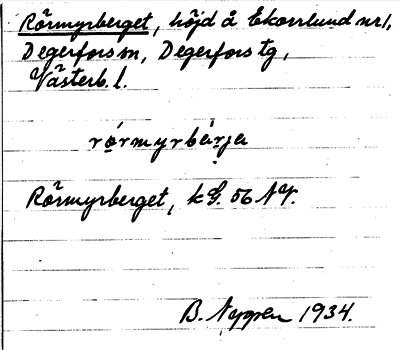 Rörmyrberget, höjd å Ekorrlund nr 1,
Degerfors sn, Degerfors tg,
Västerb. l.
rórmyrbárja
Rörmyrberget, kg. 56 NV.
B. Nyppen 1934.